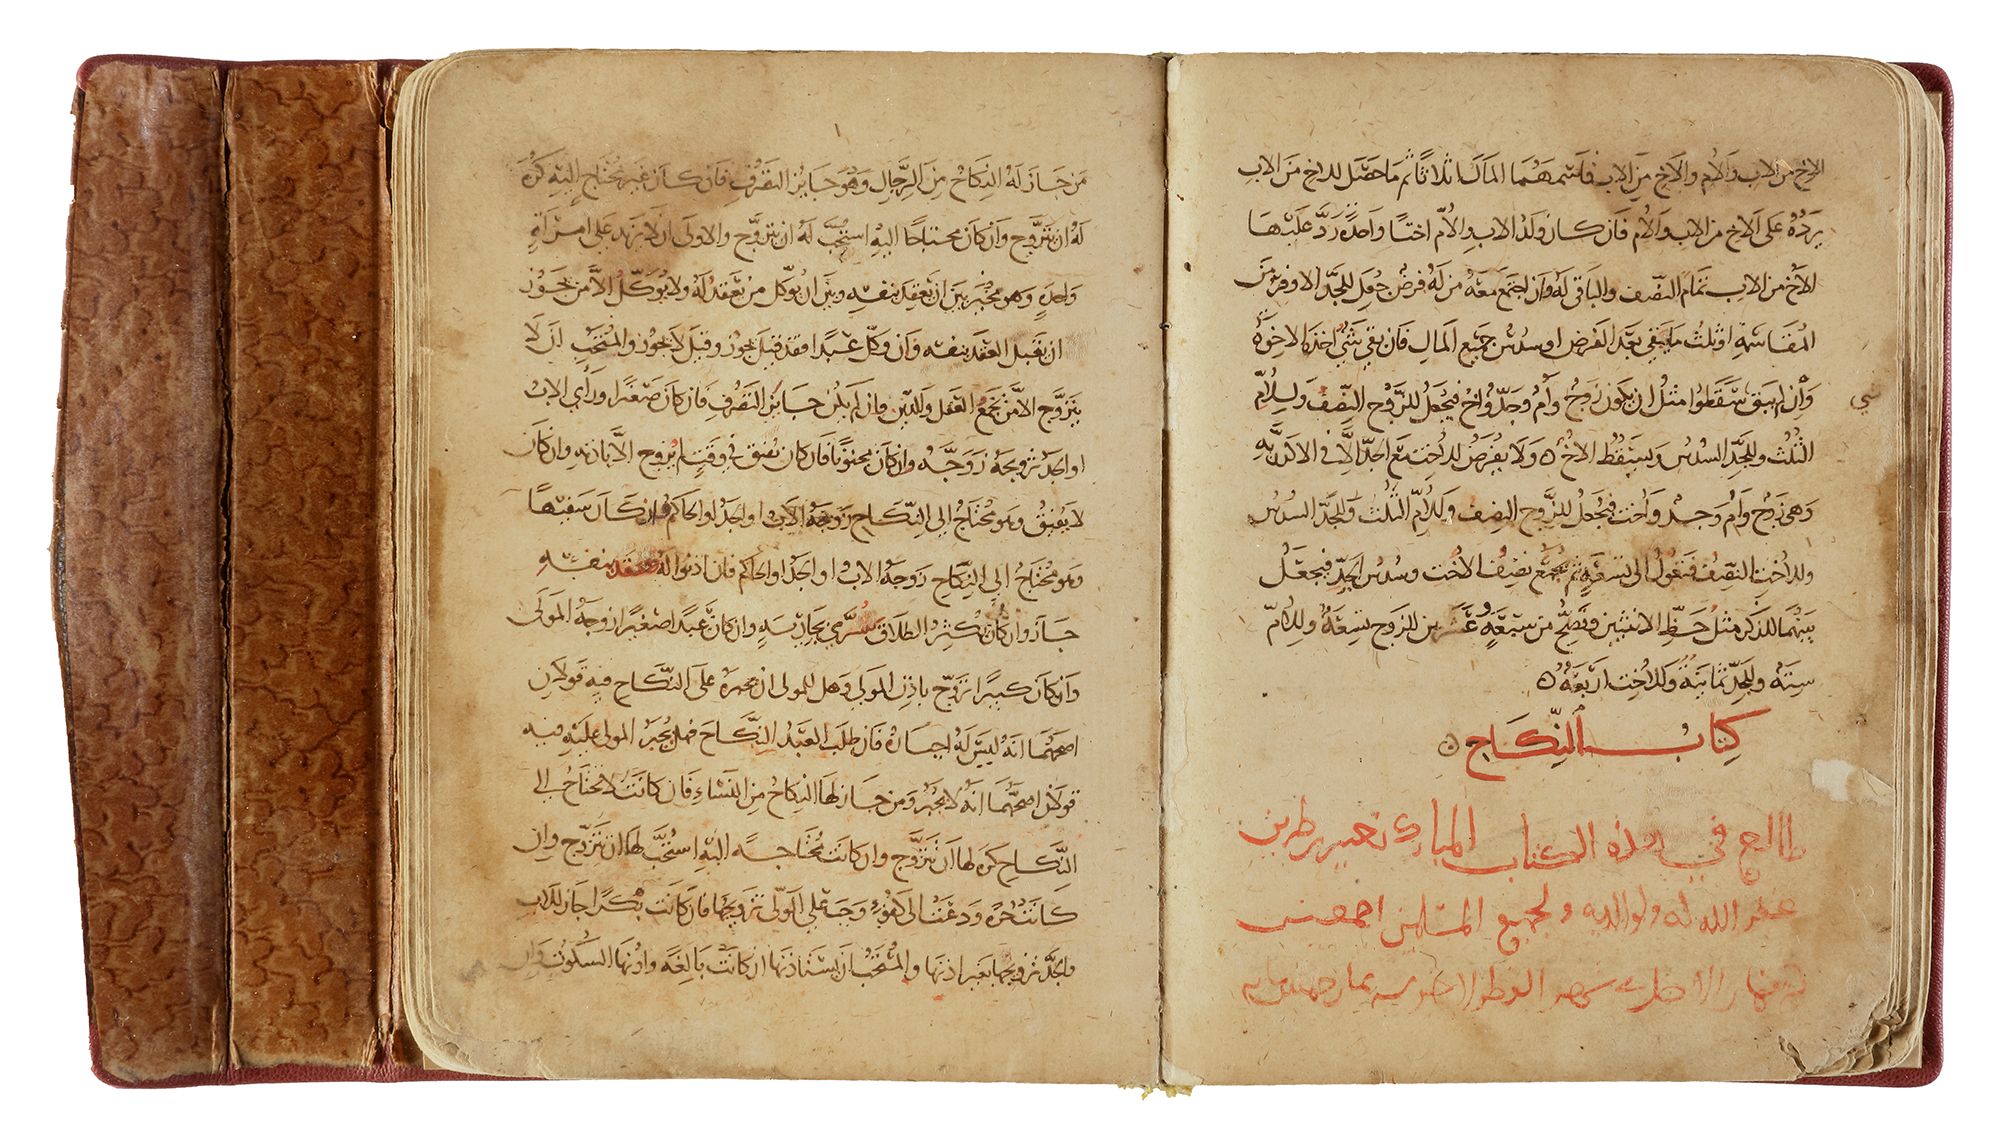 الاخ من الاب والام والاخ من الاب قاسمهما المال اثلاثا ثم ما حصل للاخ من الاب
يرده على الاخ من الاب والام فان كان ولد الاب والام اختا واحدة رد عليها
الاخ من الاب تمام النصف والباقي له وان اجتمع معه من له فرض جعل للجد الاوفر من
المقاسمة او ثلث ما يبقى بعد الفرض او سدس جميع المال فان بقي شي اخذه الاخوة
وان لم يبق سقطوا مثل ان يكون زوج وام وجد واخ فيجعل للزوج النصف وللام
الثلث وللجد السدس ويسقط الاخ ولا يفرض للاخت مع الجد الا في الاكدرية
وهي زوج وام وجد واخت فيجعل للزوج النصف وللام الثلث وللجد السدس
وللاخت النصف فتعول الى تسعة ثم يجمع نصف الاخت وسدس الجد فيجعل
بينهما للذكر مثل حظ الانثيين وتصح من سبعة وعشرين للزوج تسعة وللام
ستة وللجد ثمانية وللاخت اربعة
كتاب النكاح
طالع في هذه الكتاب المبارك
غفر الله له ولوالديه ولجميع المسلمين اجمعين
من جاز له النكاح من الرجال وهو جايز التصرف فان كان غير محتاج اليه كره
له ان يتزوج وان كان محتاجا اليه استحب له ان يتزوج والاولى ان لا يزيد على امراة
واحدة وهو مخير بين ان يعقد بنفسه وبين ان يوكل من يعقد له ولا يوكل الا من يجوز
ان يقبل العقد بنفسه وان وكل عبدا فقد قيل يجوز وقيل لا يجوز والمستحب ان لا
يتزوج الا من يجمع العقل والدين وان لم يكن جايز التصرف فان كان صغيرا وراي الاب
او الجد تزويجه زوجه وان كان مجنونا فان كان يفيق في وقت لم يزوج الا باذنه وان كان
لا يفيق وهو محتاج الى النكاح زوجه الاب او الجد او الحاكم فان كان سفيها
وهو محتاج الى النكاح زوجه الاب او الجد او الحاكم فان اذنوا له فعقد بنفسه
جاز وان كان يكثر الطلاق سري بجارية وان كان عبدا صغيرا زوجه المولى
وان كان كبيرا تزوج باذن المولى وهل للمولى ان يجبره على النكاح فيه قولان
اصحهما انه ليس له اجباره فان طلب العبد النكاح فهل يجبر المولى عليه فيه
قولان اصحهما انه لا يجبر ومن جاز لها النكاح من النساء فان كانت لا تحتاج الى
النكاح كره لها ان تتزوج وان كانت محتاجة اليه استحب لها ان تتزوج وان
كانت حرة ودعت الى كفو وجب على الولي تزويجها فان كانت بكرا جاز للاب
والجد تزويجها بغير اذنها والمستحب ان يستاذنها ان كانت بالغة واذنها السكوت وان